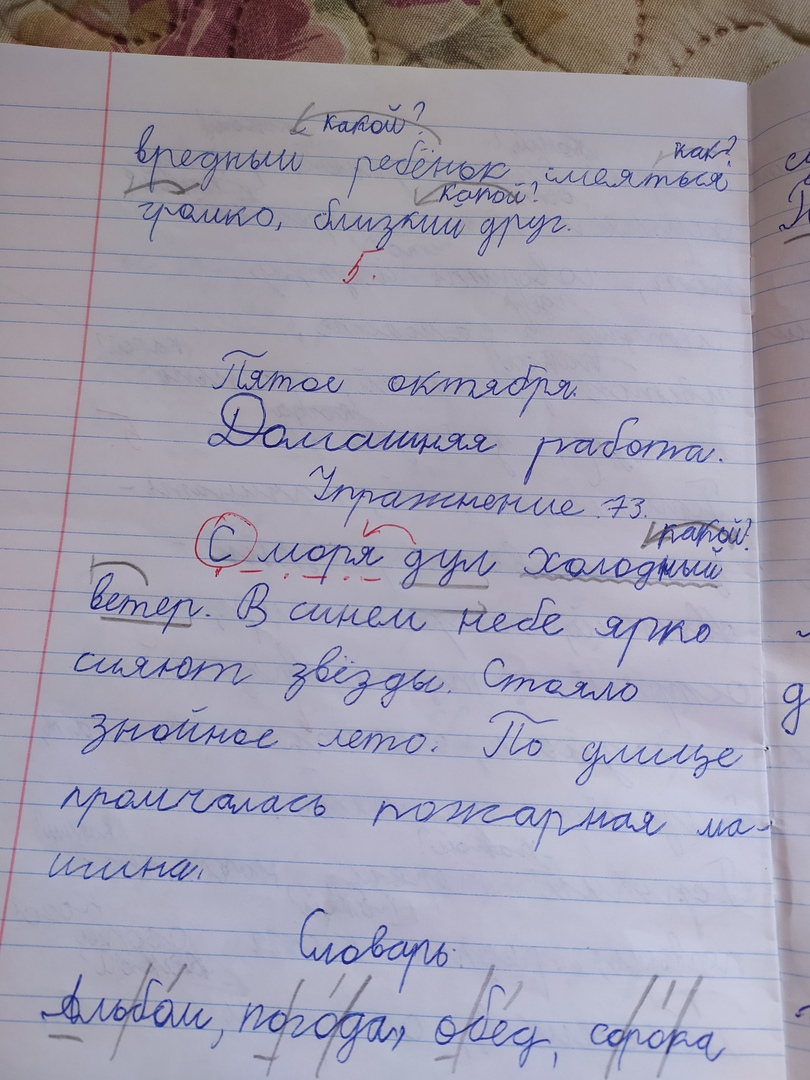 какой?
вредный ребёнок смеяться как?
громко, близкий друг. какой?
5.
Пятое октября.
Домашняя работа.
Упражнение 73.
какой?
С моря дул холодный
ветер. В синем небе ярко
сияют звёзды. Стояло
знойное лето. По улице
промчалась пожарная ма-
шина.
Словарь.
Альбом, погода, обед, сорока